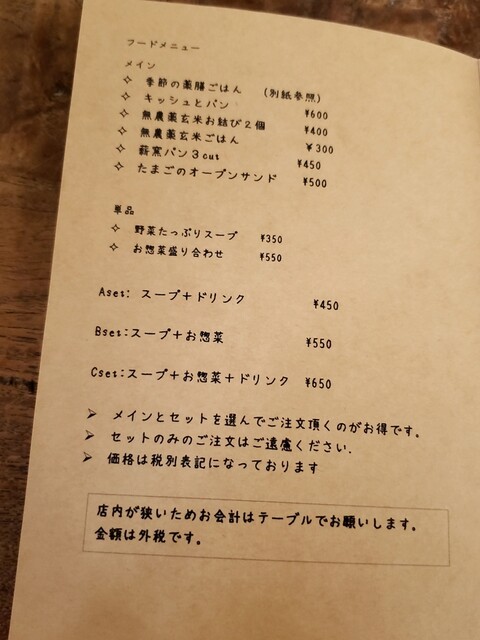 フードメニュー
メイン
✧ 季節の薬膳ごはん (別紙参照)
✧ キッシュとパン ¥600
✧ 無農薬玄米お結び2個 ¥400
✧ 無農薬玄米ごはん ¥300
✧ 薪窯パン3cut ¥450
✧ たまごのオープンサンド ¥500
単品
✧ 野菜たっぷりスープ ¥350
✧ お惣菜盛り合わせ ¥550
Aset: スープ+ドリンク ¥450
Bset:スープ+お惣菜 ¥550
Cset:スープ+お惣菜+ドリンク ¥650
➢ メインとセットを選んでご注文頂くのがお得です。
➢ セットのみのご注文はご遠慮ください.
➢ 価格は税別表記になっております
店内が狭いためお会計はテーブルでお願いします。
金額は外税です。